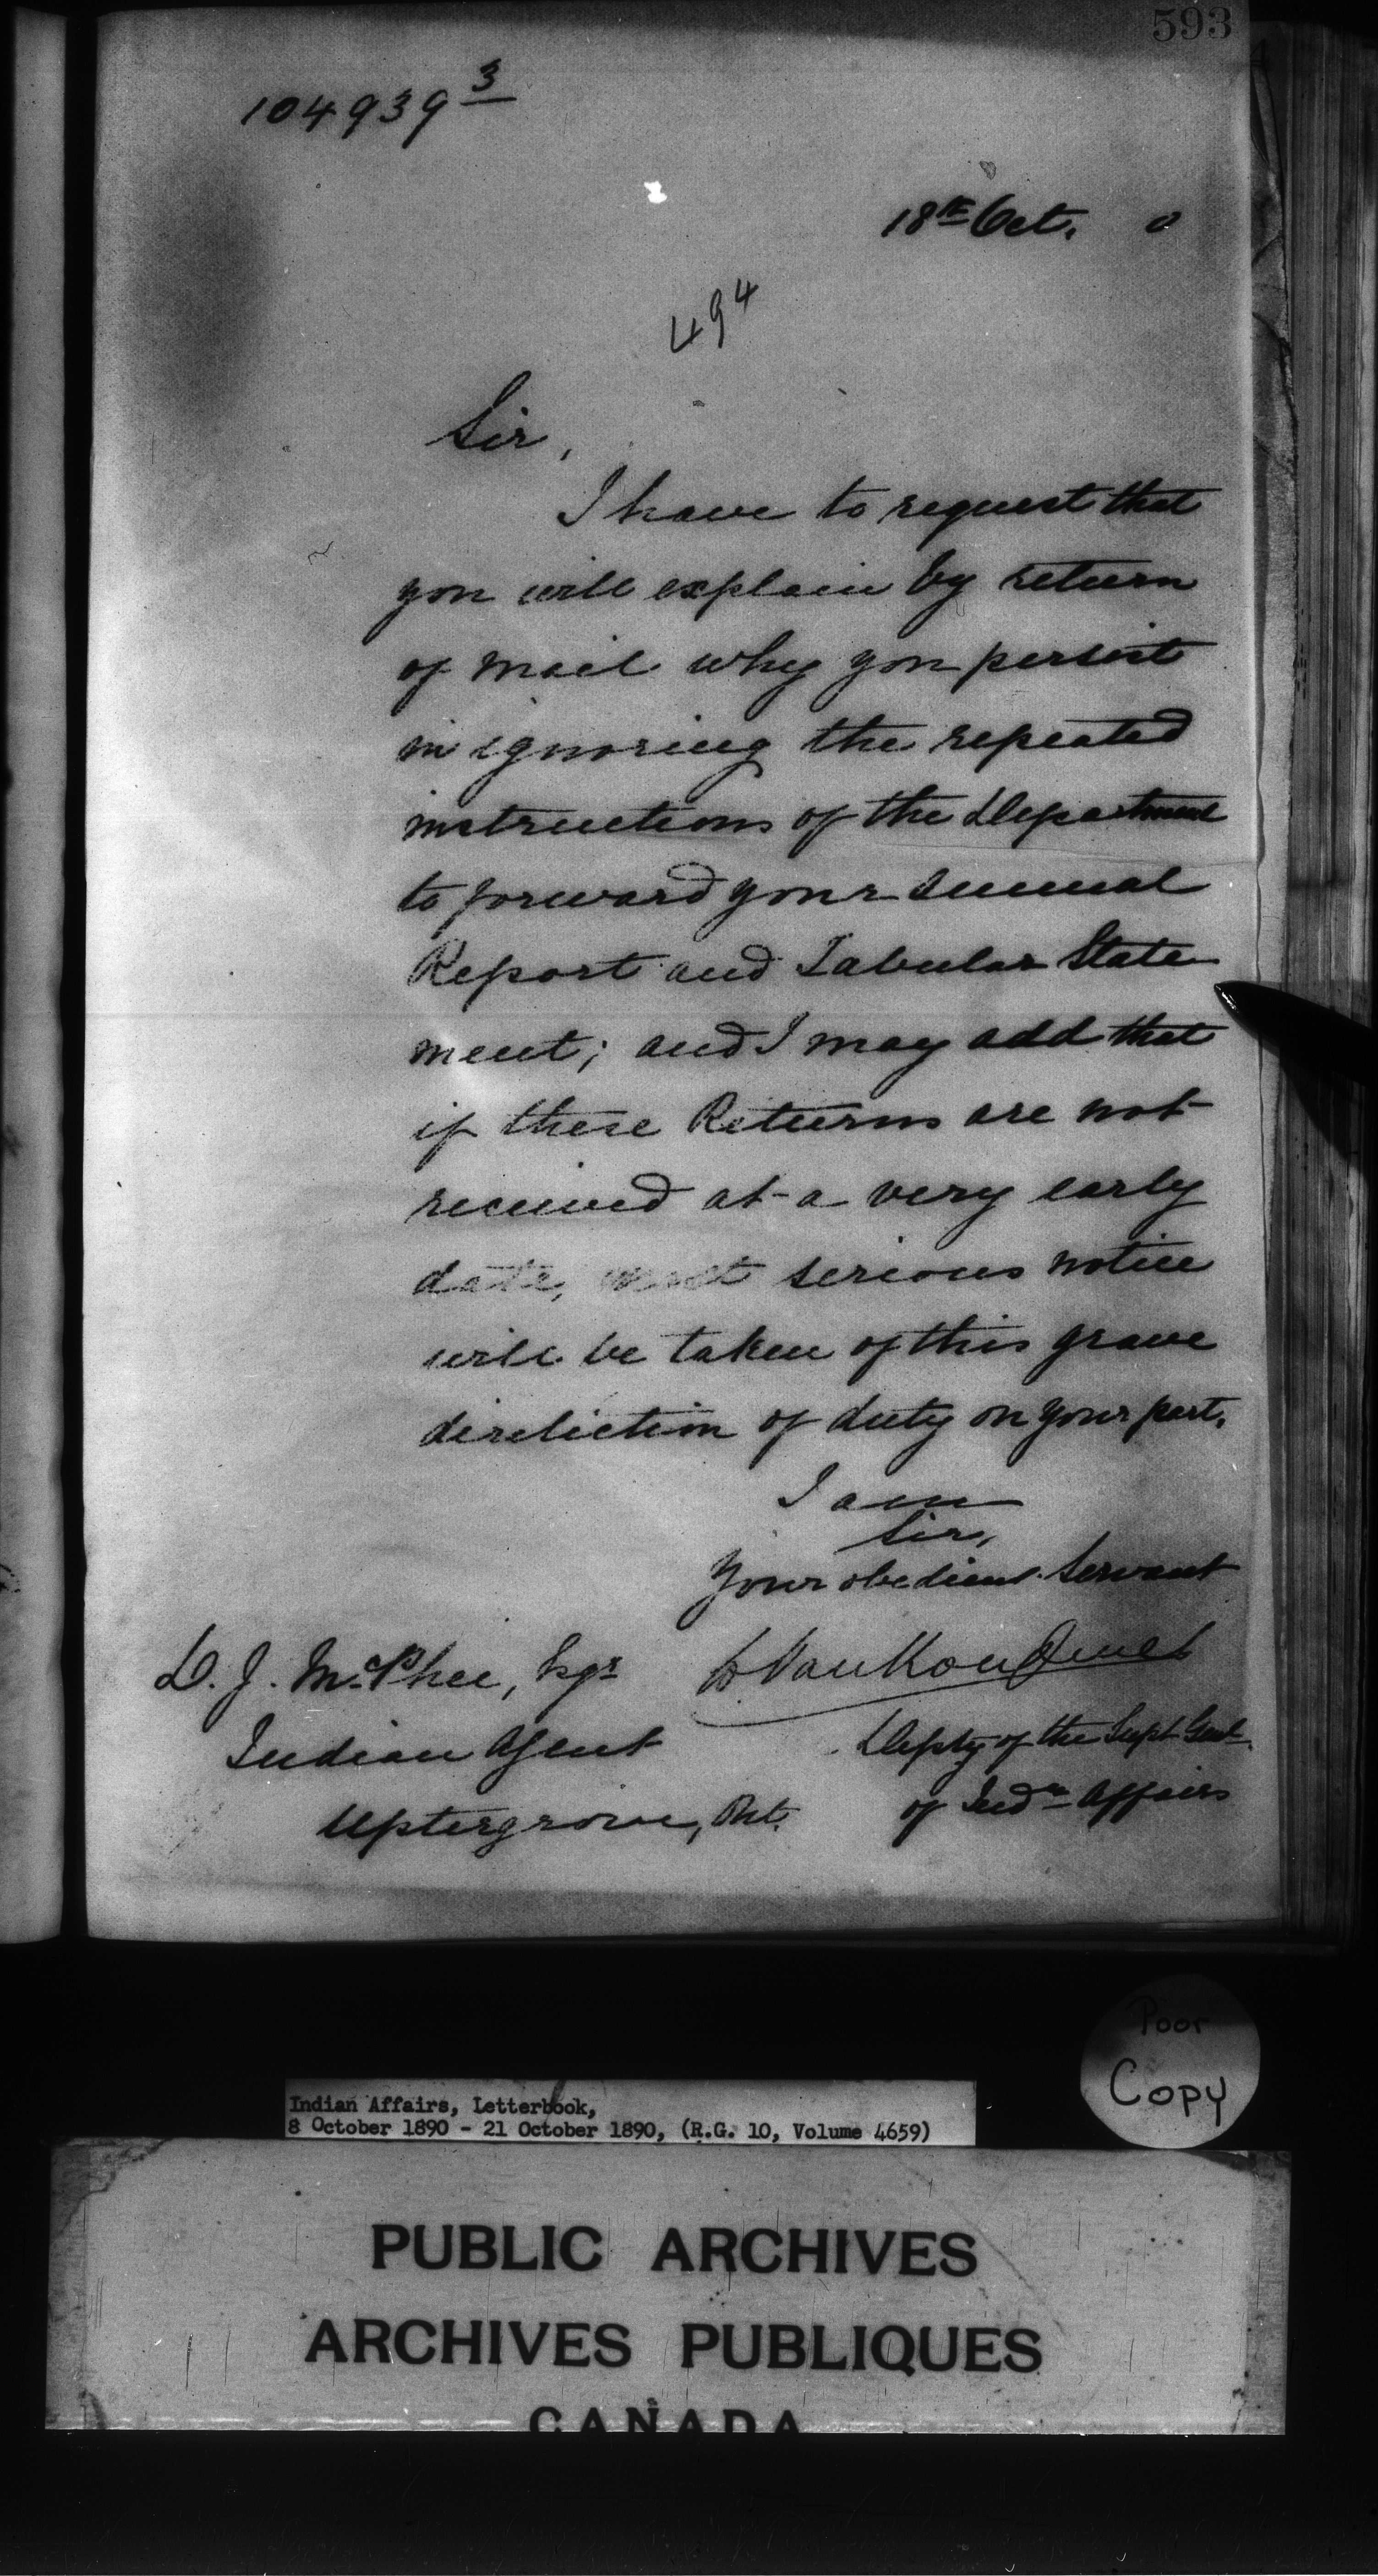 593
104939 3
18th Oct. 0
494
Sir,
I have to request that
you will explain by return
of mail why you persist
in ignoring the repeated
instructions of the Department
to forward your Annual
Report and Tabular State
ment; and I may add that
if these Returns are not
received at a very early
date, most serious notice
will be taken of this grave
direliction of duty on your part.
I am
Sir,
Your obedient Servant
L VanKoughnet
D. J. McPhee, Esqr
Depty of the Supt Genl.
Indian Agent
of Indn Affairs
Uptergrove, Ont.
Poor
Copy
Indian Affairs, Letterbook,
8 October 1890 - 21 October 1890, (R.G. 10, Volume 4659)
PUBLIC ARCHIVES
ARCHIVES PUBLIQUES
CANADA